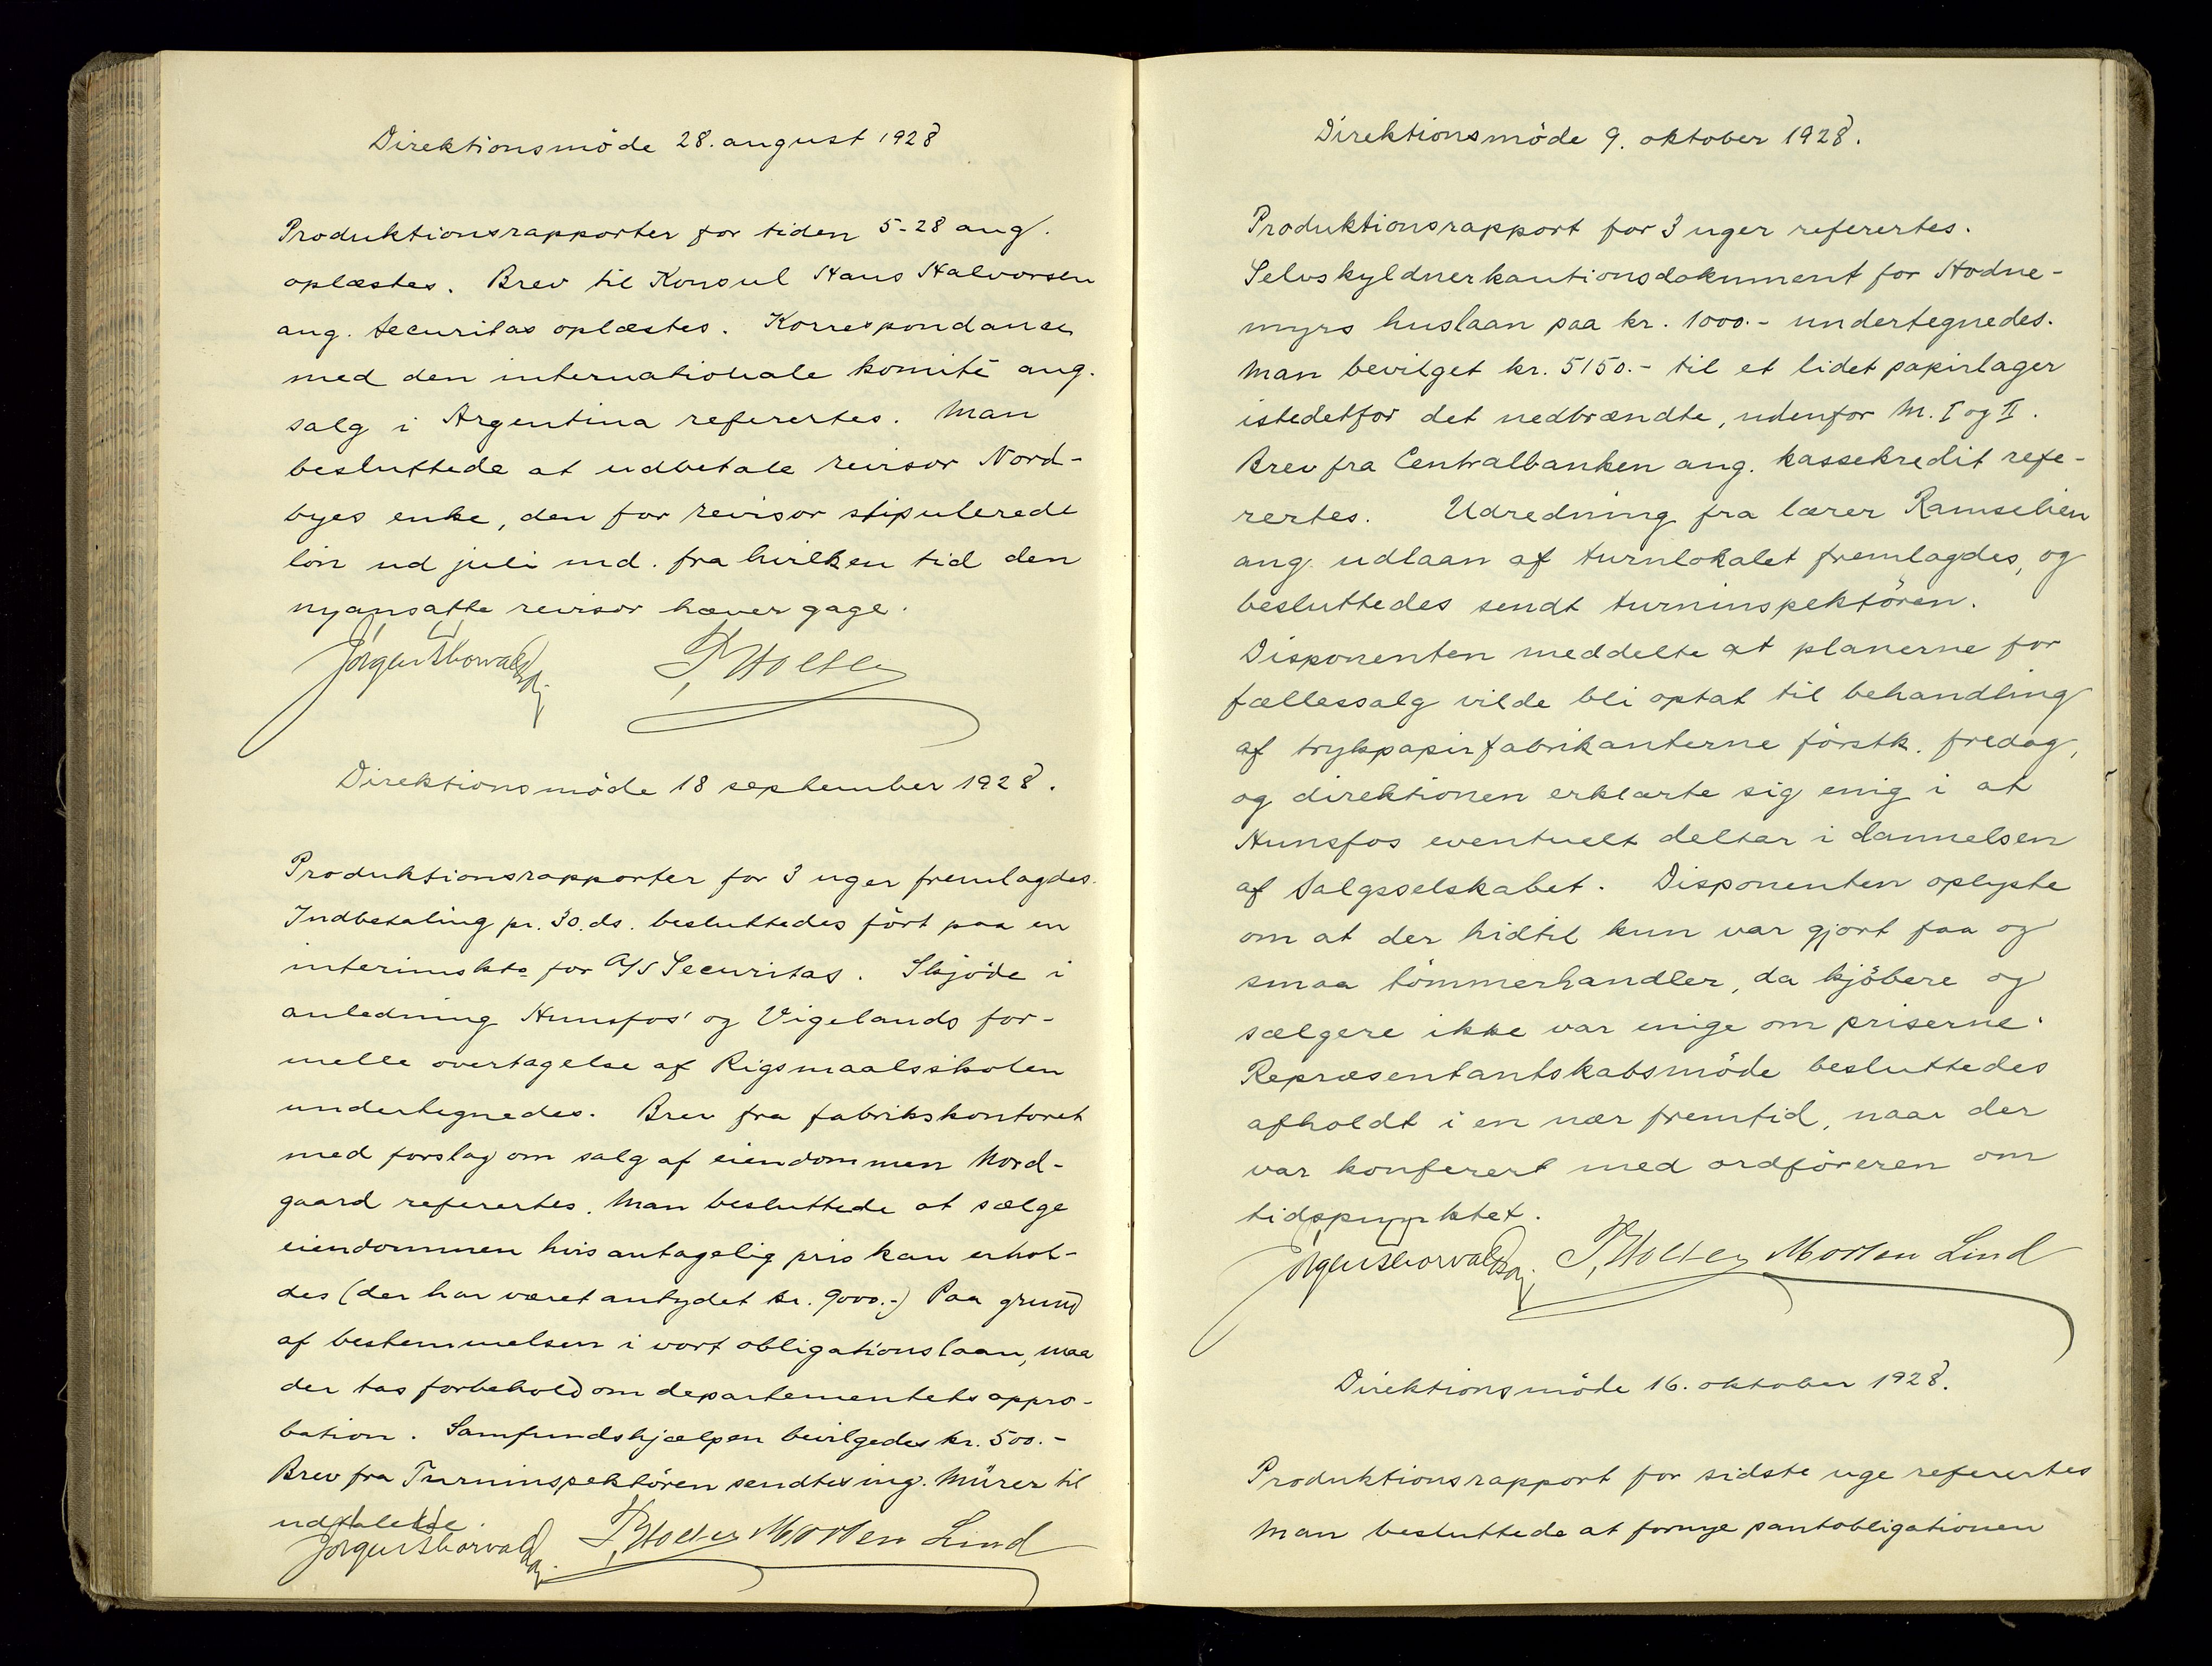 Direktionsmöde 28. august 1928
Produktionsrapporter for tiden 5-28 aug.
oplæstes. Brev til Konsul Hans Halvorsen
ang. Securitas oplæstes. Korrespondance
med den internationale komité ang.
salg i Argentina referertes. Man
besluttede at udbetale revisor Nord-
byes enke, den for revisor stipulerede
lön ud juli md. fra hvilken tid den
nyansatte revisor hæver gage.
Jörgen Thorvaldsøn P. Holter
Direktionsmöde 18 september 1928.
Produktionsrapporter for 3 uger fremlagdes.
Indbetaling pr. 30. ds. besluttedes fört paa en
interimskto for A/S Securitas. Skjöde i
anledning Hunsfos' og Vigelands for-
melle overtagelse af Rigsmaalsskolen
undertegnedes. Brev fra fabrikskontoret
med forslag om salg af eiendommen Nord-
gaard referertes. Man besluttede at sælge
eiendommen hvis antagelig pris kan erhol-
des (der har været antydet kr. 9000.-) Paa grund
af bestemmelsen i vort obligationslaan, maa
der tas forbehold om departementets appro-
bation. Samfundshjælpen bevilgedes kr. 500.-
Brev fra Turninspektören sendtes ing. Mürer til
udtalelse.
Jörgen Thorvaldsøn P. Holter Morten Lind
Direktionsmöde 9. oktober 1928.
Produktionsrapport for 3 uger referertes.
Selvskyldnerkautionsdokument for Hodne-
myrs huslaan paa kr. 1000.- undertegnedes.
Man bevilget kr. 5150.- til et lidet papirlager
istedetfor det nedbrændte, udenfor M. I og II.
Brev fra Centralbanken ang. kassekredit refe-
rertes. Udredning fra lærer Ramselien
ang. udlaan af turnlokalet fremlagdes, og
besluttedes sendt turninspektören.
Disponenten meddelte at planerne for
fællessalg vilde bli optat til behandling
af trykpapirfabrikanterne förstk. fredag,
og direktionen erklærte sig enig i at
Hunsfos eventuelt deltar i dannelsen
af Salgsselskabet. Disponenten oplyste
om at der hidtil kun var gjort faa og
smaa tömmerhandler, da kjöbere og
sælgere ikke var enige om priserne.
Repræsentantskabsmöde besluttedes
afholdt i en nær fremtid, naar der
var konferert med ordföreren om
tidspunktet.
Jörgen Thorvaldsøn P. Holter Morten Lind
Direktionsmöde 16. oktober 1928.
Produktionsrapport for sidste uge referertes
Man besluttede at fornye pantobligationen